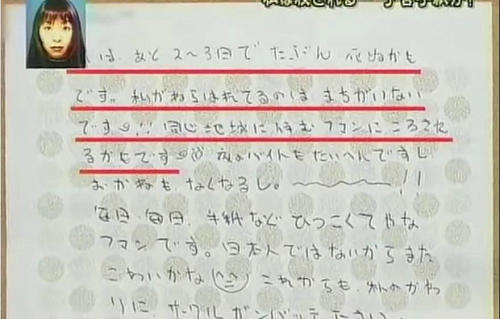 私は殺される 予告手紙か!
は、あと2〜3日でたぶん 死ぬかも
です。私がねらはれてるのは まちがいない
です!! 同じ地域に住むファンにころされ
るかもです 夜のバイトもたいへんですし
おかねもなくなるし。!!
毎日、毎日、手紙など ひつこくてやな
ファンです。日本人ではないからまた
こわいかな(^-^) これからも、私のかわ
りに、サークルガンバッテ下さい